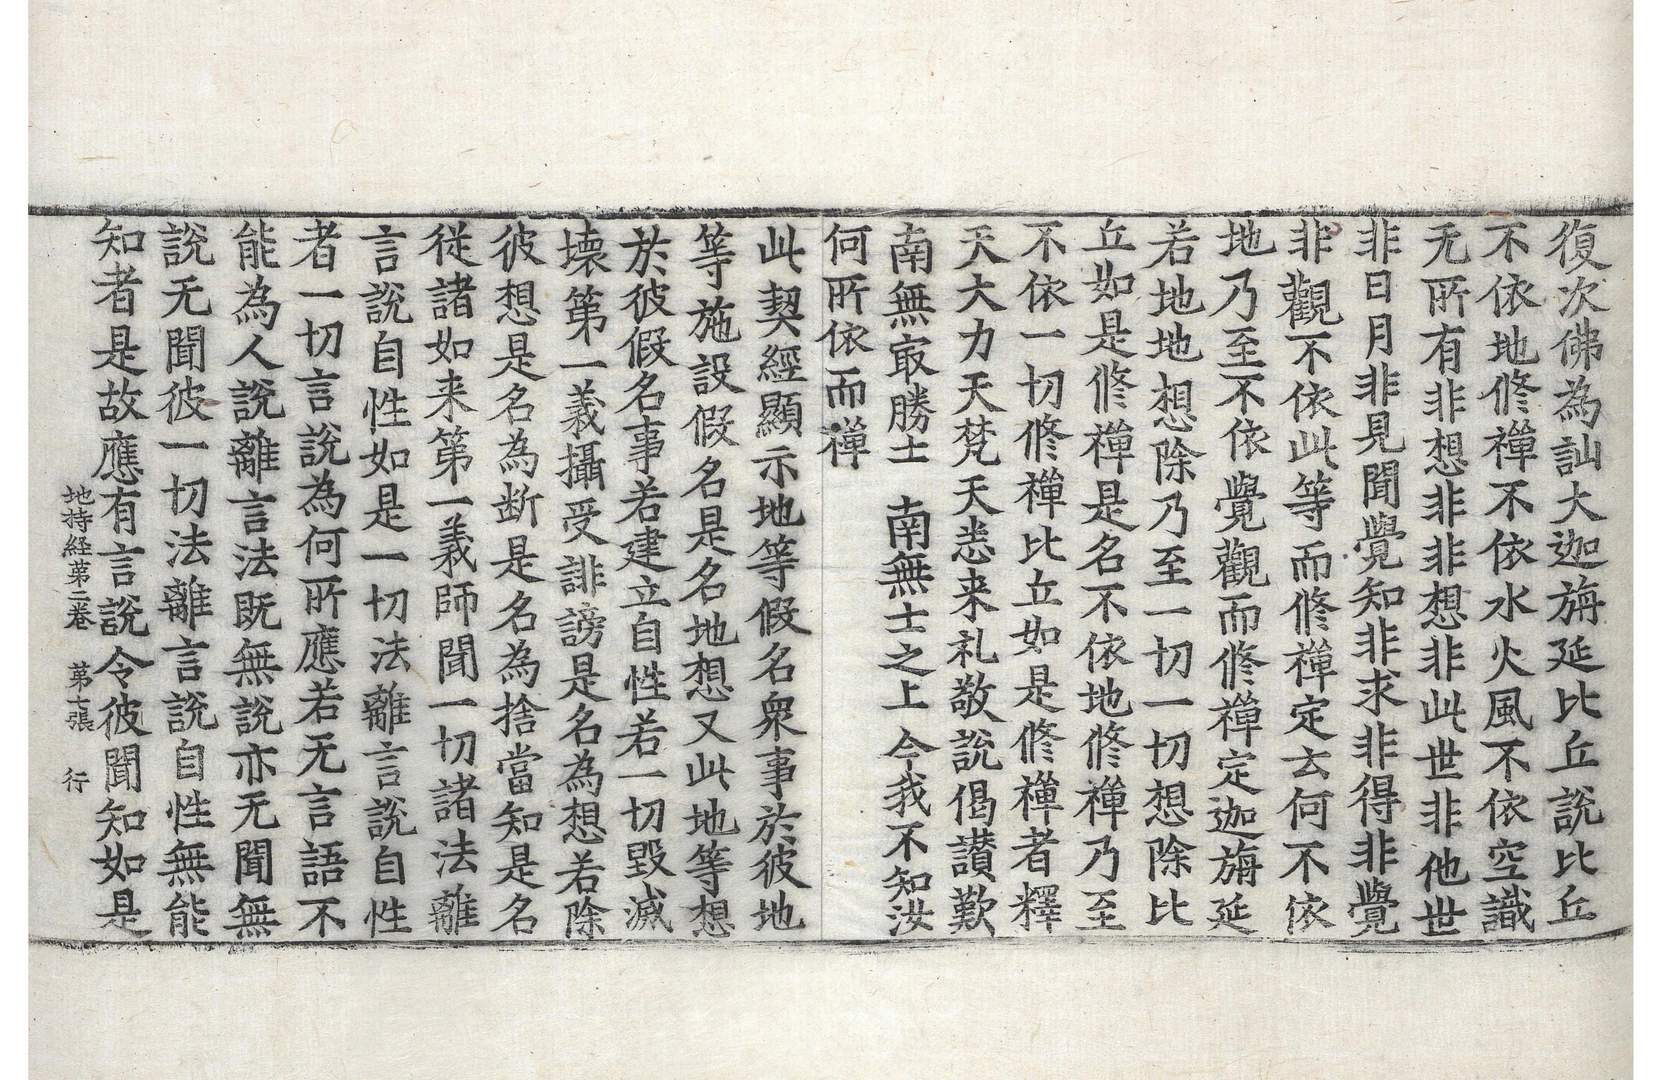 復次佛為訕大迦旃延比丘說比丘
不依地修禪不依水火風不依空識
无所有非想非非想非此世非他世
非日月非見聞覺知非求非得非覺
非觀不依此等而修禪定云何不依
地乃至不依覺觀而修禪定迦旃延
若地地想除乃至一切一切想除比
丘如是修禪是名不依地修禪乃至
不依一切修禪比丘如是修禪者釋
天大力天天梵天悉来礼敬說偈讃歎
南無㝡勝士　南無士之上　今我不知汝
何所依而禪
此契經顯示地等假名衆事於彼地
等施設假名是名地想又此地等想
於彼假名事若建立自性若一切毀滅
壊第一義攝受誹謗是名為想若除
彼想是名為断是名為捨當知是名
従諸如来第一義師聞一切諸法離
言說自性如是一切法離言說自性
者一切言說為何所應若无言語不
能為人說離言法既無說亦无聞無
說无聞彼一切法離言說自性無能
知者是故應有言說令彼聞知如是
地持経第二巻　第七張　行